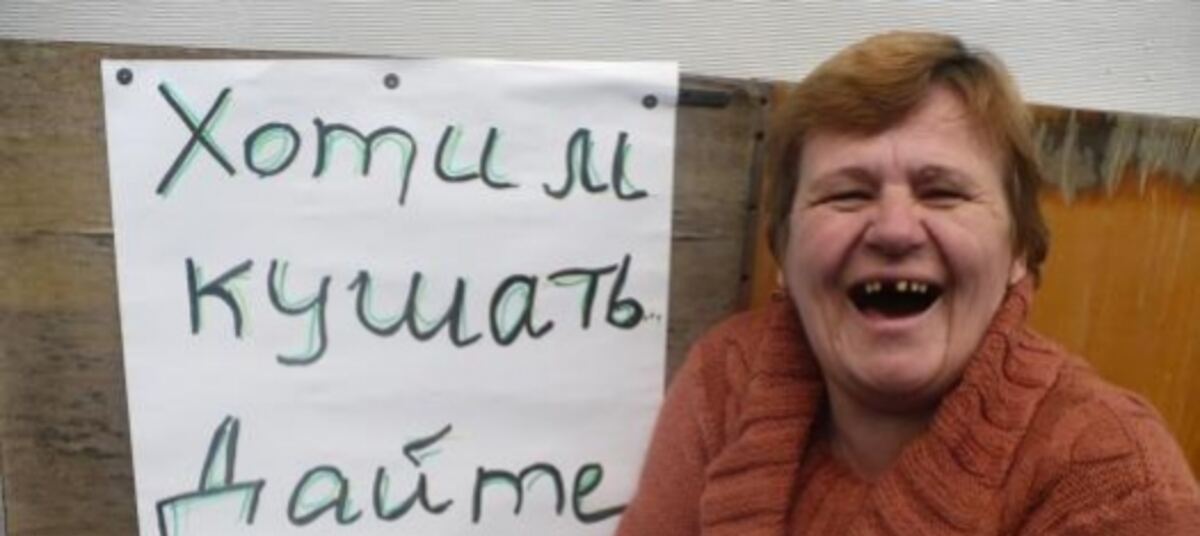 Хотим
кушать...
Дайте